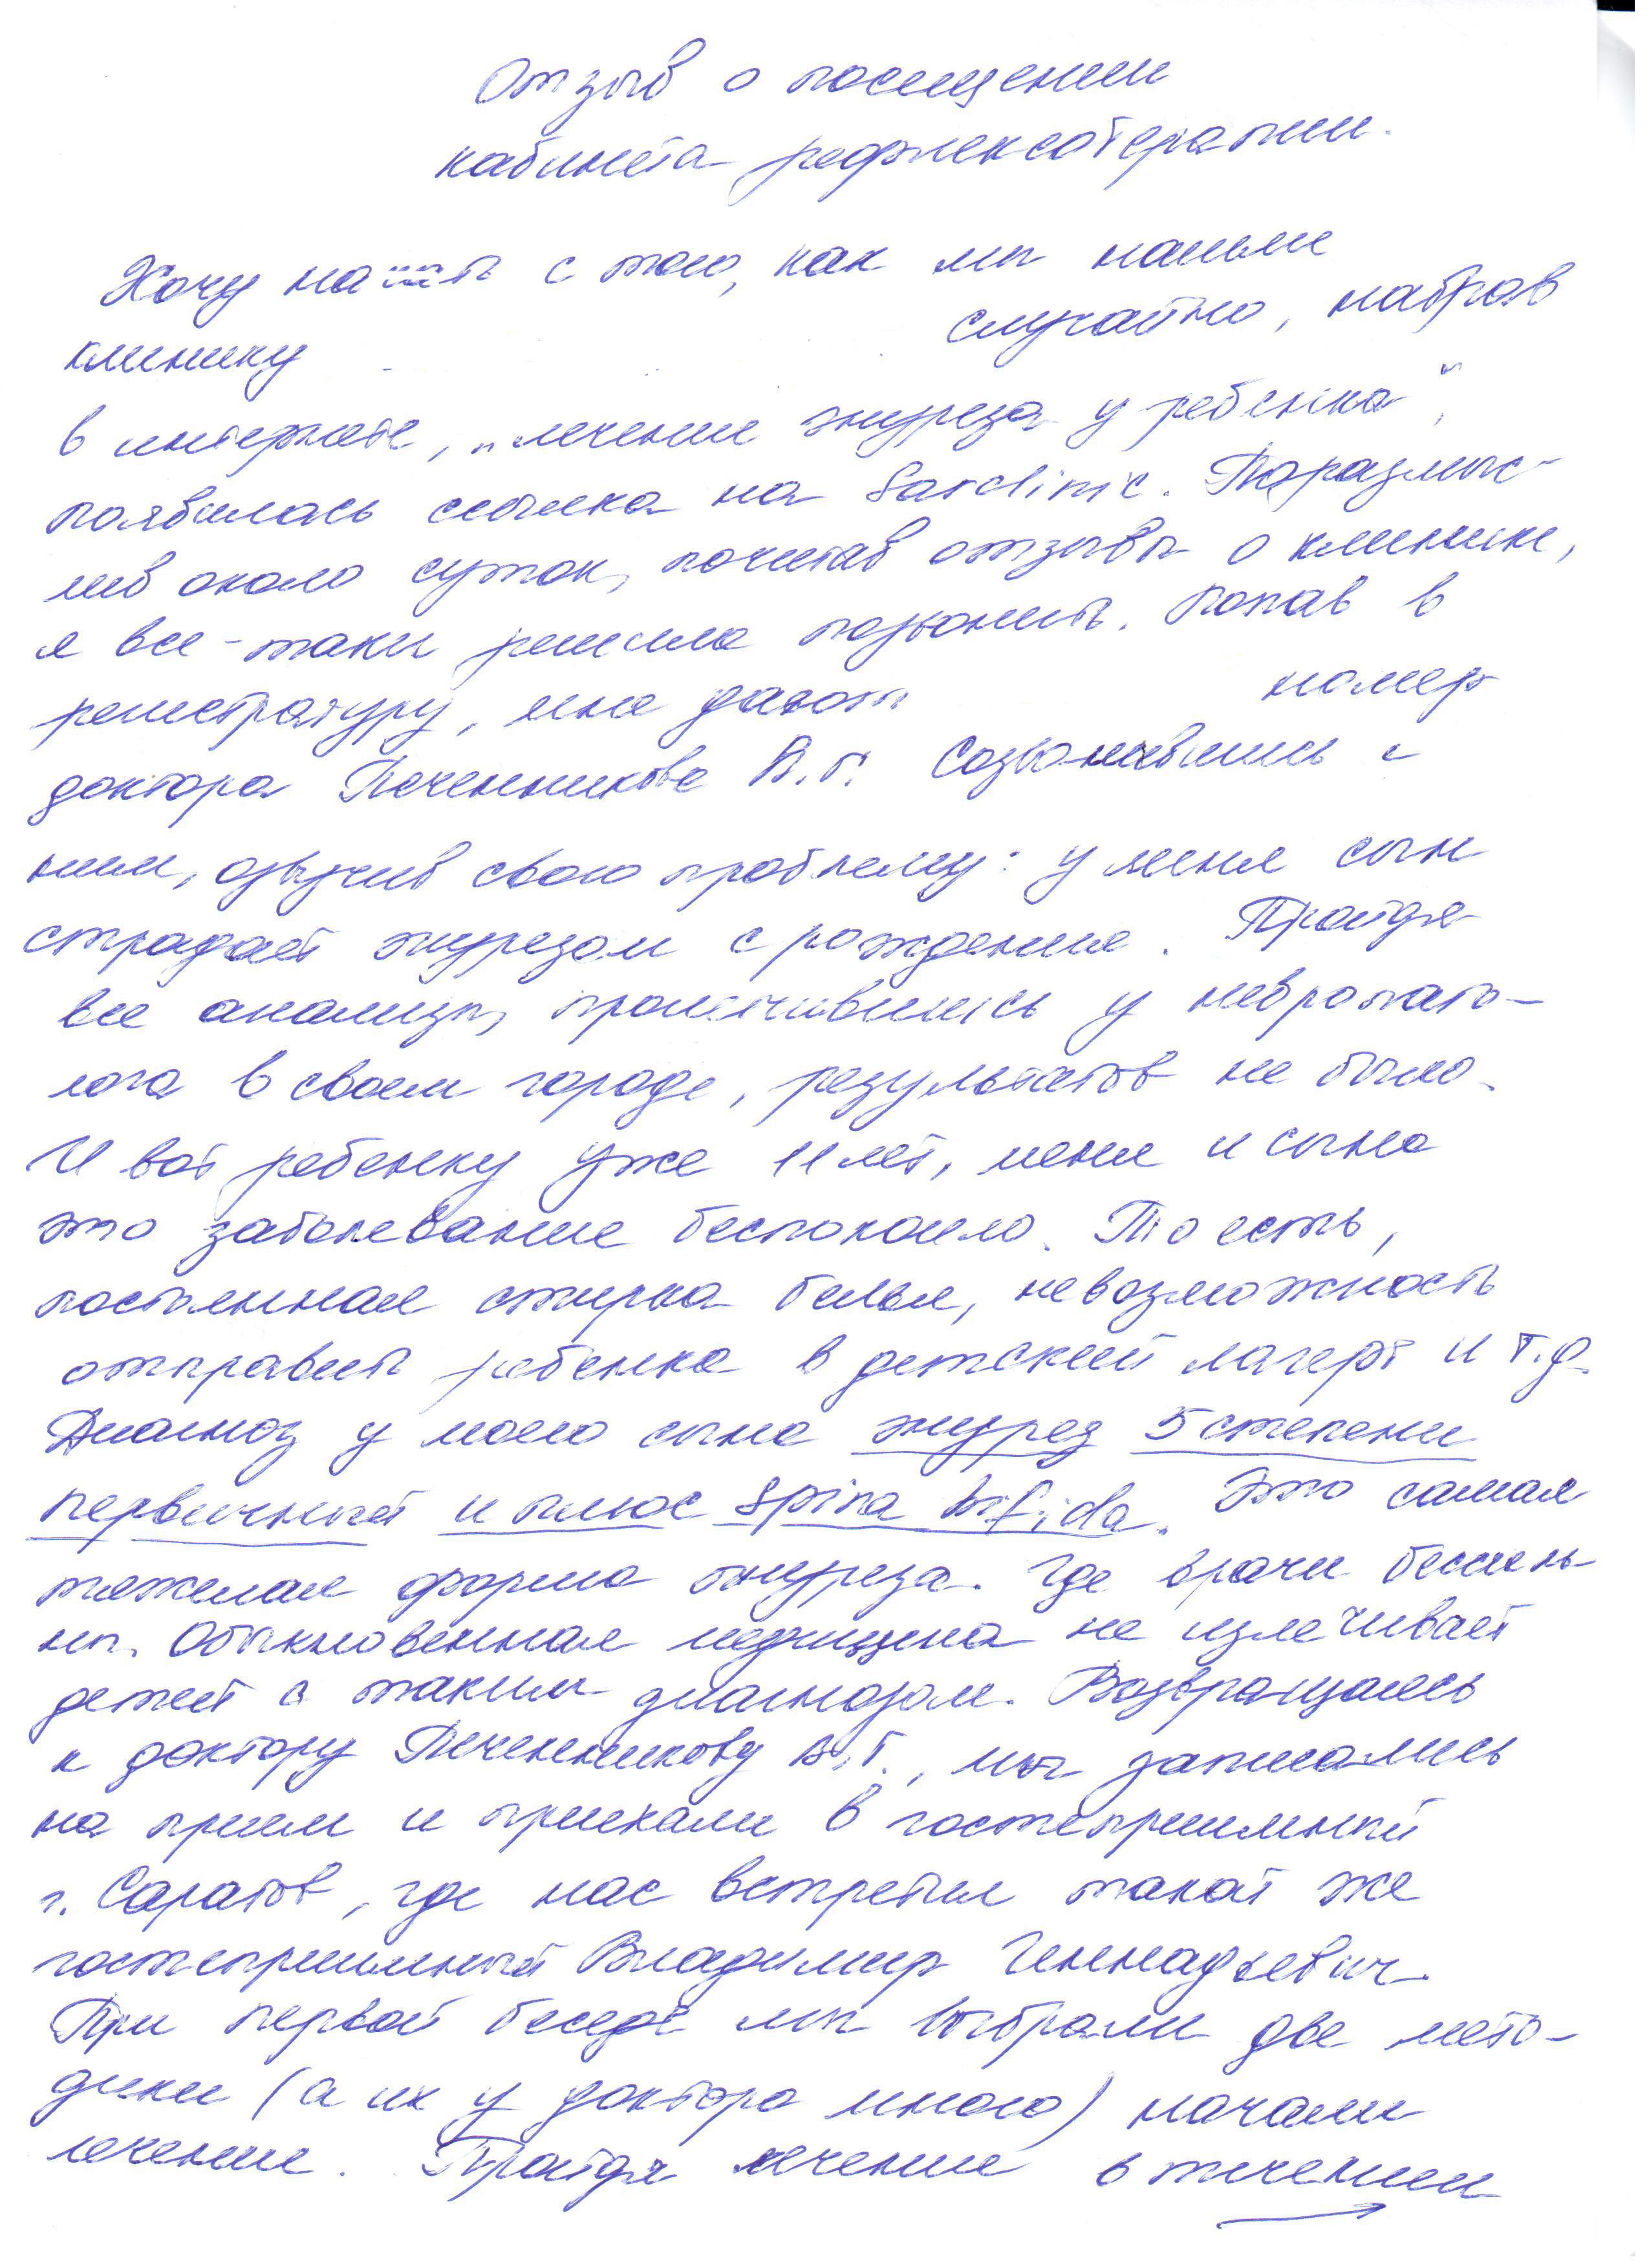 Отзыв о посещении
кабинета рефлексотерапии.
Хочу начать с того, как мы нашли
клинику случайно, набрав
в интернете, „лечение энуреза у ребенка",
появилась ссылка на Sarclinic. Поразмыс-
лив около суток, почитав отзывы о клинике,
я все-таки решила позвонить. Попав в
регистратуру, мне дают номер
доктора Печенникова В.Г. Созвонившись с
ним, озвучив свою проблему: у меня сын
страдает энурезом с рождения. Пройдя
все анализы, пролечившись у невропато-
лога в своем городе, результатов не было.
И вот ребенку уже 11 лет, меня и сына
это заболевание беспокоило. То есть,
постоянная стирка белья, невозможность
отправить ребенка в детский лагерь и т.д.
Диагноз у моего сына энурез 5 степени
первичный и плюс Spina bifida. Это самая
тяжелая форма энуреза. Где врачи бессиль-
ны. Обыкновенная медицина не излечивает
детей с таким диагнозом. Возвращаясь
к доктору Печенникову В.Г., мы записались
на прием и приехали в гостеприимный
г. Саратов, где нас встретил такой же
гостеприимный Владимир Геннадьевич.
При первой беседе мы выбрали две мето-
дики (а их у доктора много) начали
лечение. Пройдя лечение в течении